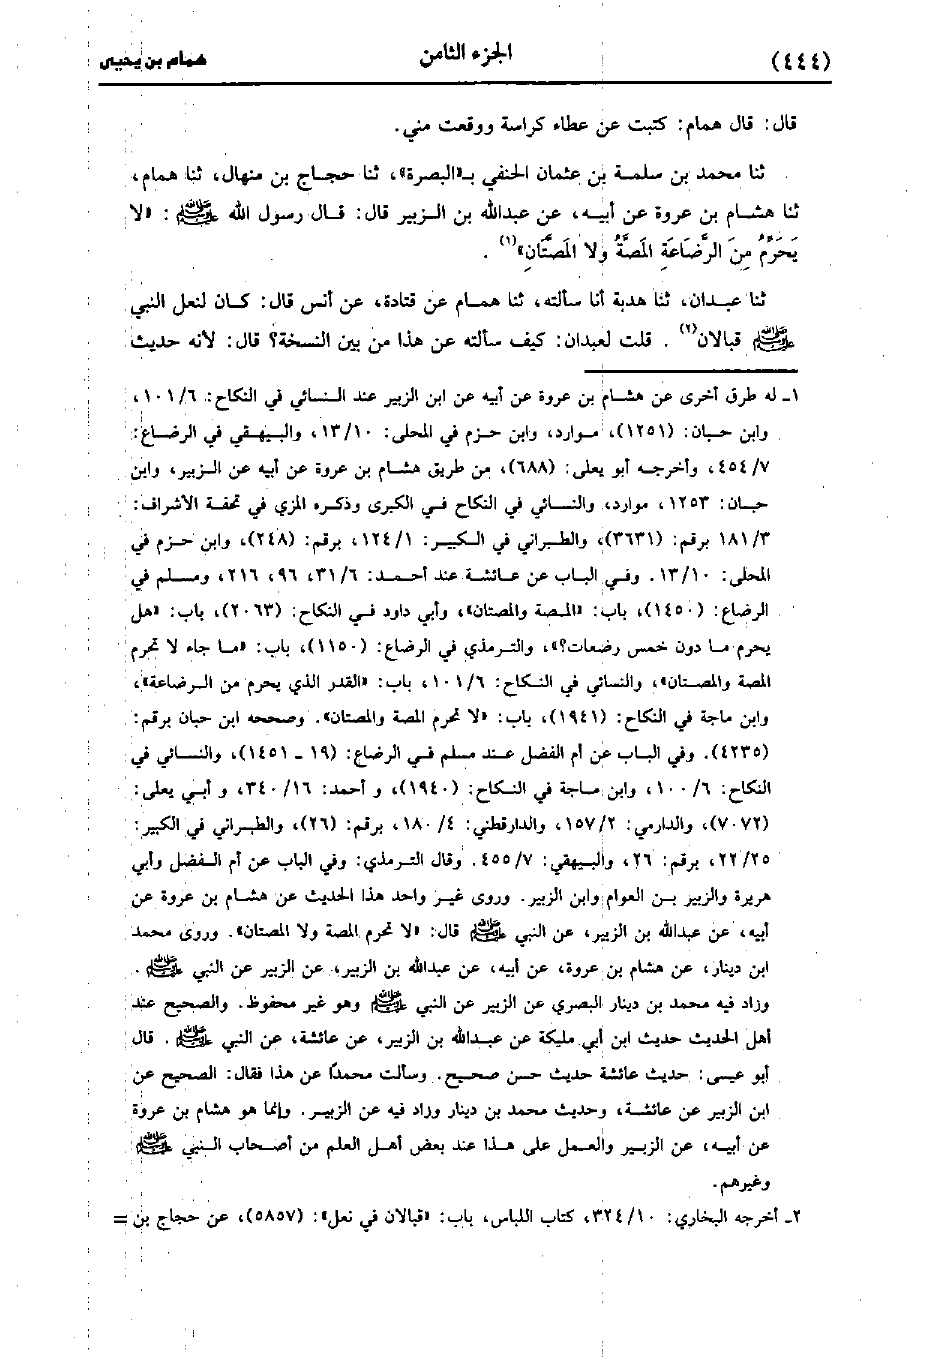 (٤٤٤) الجزء الثامن همام بن يحيى
قال: قال همام: كتبت عن عطاء كراسة ووقعت مني.
ثنا محمد بن سلمة بن عثمان الحنفي بـ«البصرة»، ثنا حجاج بن منهال، ثنا همام،
ثنا هشام بن عروة عن أبيه، عن عبدالله بن الزبير قال: قال رسول الله ﷺ: «لا
يَحَرِّمُ مِنَ الرَّضَاعَةِ المَصَّةُ ولا المَصَّتَانِ»(١).
ثنا عبدان، ثنا هدبة أنا سألته، ثنا همام عن قتادة، عن أنس قال: كان لنعل النبي
ﷺ قبالان(٢). قلت لعبدان: كيف سألته عن هذا من بين النسخة؟ قال: لأنه حديث
١ـ له طرق أخرى عن هشام بن عروة عن أبيه عن ابن الزبير عند النسائي في النكاح: ١٠١/٦،
وابن حبان: (١٢٥١)، موارد، وابن حزم في المحلى: ١٣/١٠، والبيهقي في الرضاع:
٤٥٤/٧، وأخرجه أبو يعلى: (٦٨٨)، من طريق هشام بن عروة عن أبيه عن الزبير، وابن
حبان: ١٢٥٣، موارد، والنسائي في النكاح في الكبرى وذكره المزي في تحفة الأشراف:
١٨١/٣ برقم: (٣٦٣١)، والطبراني في الكبير: ١٢٤/١، برقم: (٢٤٨)، وابن حزم في
المحلى: ١٣/١٠. وفي الباب عن عائشة عند أحمد: ٣١/٦، ٩٦، ٢١٦، ومسلم في
الرضاع: (١٤٥٠)، باب: «المصة والمصتان»، وأبي داود في النكاح: (٢٠٦٣)، باب: «هل
يحرم ما دون خمس رضعات؟»، والترمذي في الرضاع: (١١٥٠)، باب: «ما جاء لا تحرم
المصة والمصتان»، والنسائي في النكاح: ١٠١/٦، باب: «القدر الذي يحرم من الرضاعة»،
وابن ماجة في النكاح: (١٩٤١)، باب: «لا تحرم المصة والمصتان». وصححه ابن حبان برقم:
(٤٢٣٥). وفي الباب عن أم الفضل عند مسلم في الرضاع: (١٩ ـ ١٤٥١)، والنسائي في
النكاح: ١٠٠/٦، وابن ماجة في النكاح: (١٩٤٠)، و أحمد: ٣٤٠/١٦، و أبي يعلى:
(٧٠٧٢)، والدارمي: ١٥٧/٢، والدارقطني: ١٨٠/٤، برقم: (٢٦)، والطبراني في الكبير:
٢٢/٢٥، برقم: ٢٦، والبيهقي: ٤٥٥/٧. وقال الترمذي: وفي الباب عن أم الفضل وأبي
هريرة والزبير بن العوام وابن الزبير. وروى غير واحد هذا الحديث عن هشام بن عروة عن
أبيه، عن عبدالله بن الزبير، عن النبي ﷺ قال: «لا تحرم المصة ولا المصتان». وروى محمد
ابن دينار، عن هشام بن عروة، عن أبيه، عن عبدالله بن الزبير، عن الزبير عن النبي ﷺ.
وزاد فيه محمد بن دينار البصري عن الزبير عن النبي ﷺ وهو غير محفوظ. والصحيح عند
أهل الحديث حديث ابن أبي مليكة عن عبدالله بن الزبير، عن عائشة، عن النبي ﷺ. قال
أبو عيسى: حديث عائشة حديث حسن صحيح. وسألت محمدًا عن هذا فقال: الصحيح عن
ابن الزبير عن عائشة، وحديث محمد بن دينار وزاد فيه عن الزبير. وإنما هو هشام بن عروة
عن أبيه، عن الزبير والعمل على هذا عند بعض أهل العلم من أصحاب النبي ﷺ
وغيرهم.
٢ـ أخرجه البخاري: ٣٢٤/١٠، كتاب اللباس، باب: «قبالان في نعل»: (٥٨٥٧)، عن حجاج بن =